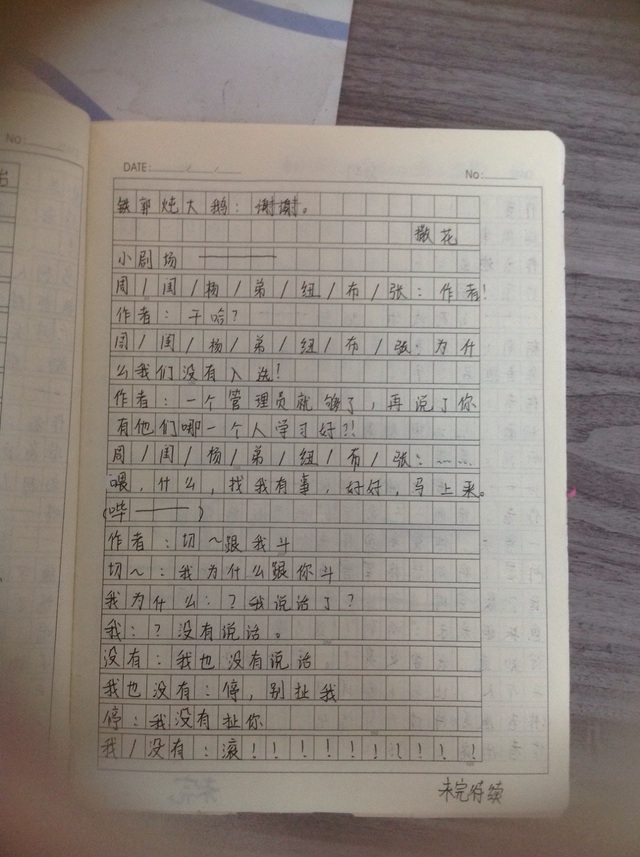 No:
DATE:
No:
铁郭炖大鹅:谢谢。
撒花
小剧场 ———
周/闰/杨/弟/纽/布/张:作者!
作者:干哈?
周/闰/杨/弟/纽/布/张:为什
么我们没有入选!
作者:一个管理员就够了,再说了你
有他们哪一个人学习好?!
周/闰/杨/弟/纽/布/张:……
喂,什么,找我有事,好好,马上来。
(哔———)
作者:切~跟我斗
切~:我为什么跟你斗
我为什么:?我说话了?
我:?没有说话。
没有:我也没有说话
我也没有:停,别扯我
停:我没有扯你
我/没有:滚!!!!!!!!!!!
未完待续